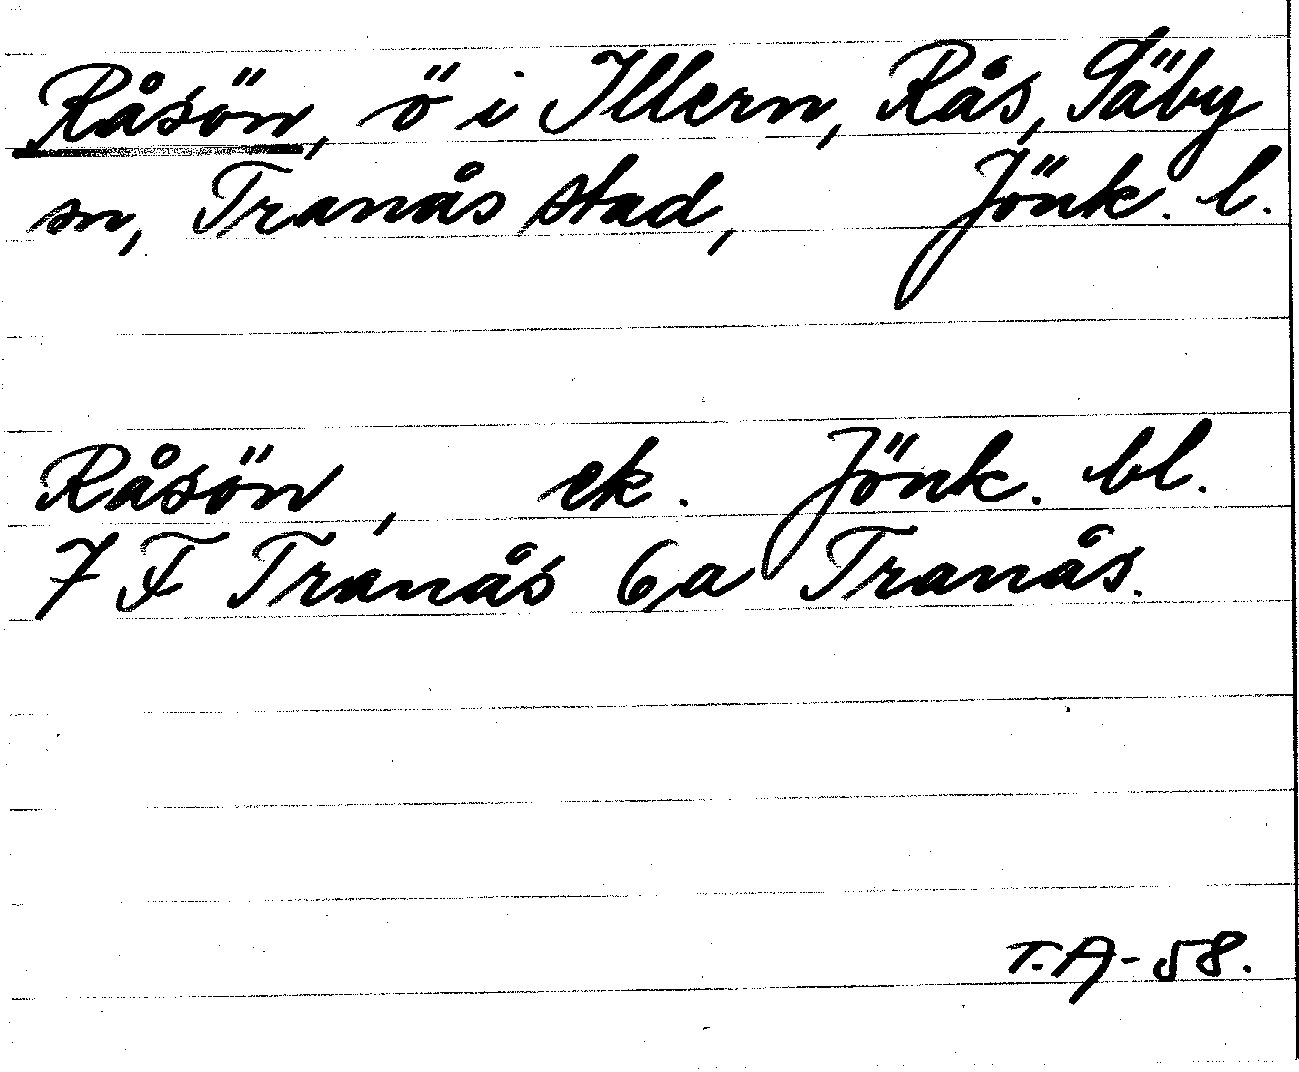 Råsön, ö i Illern, Rås, Säby
sn, Tranås stad, Jönk. l.
Råsön, ek. Jönk. bl.
7 F Tranås 6a Tranås.
T.A-58.